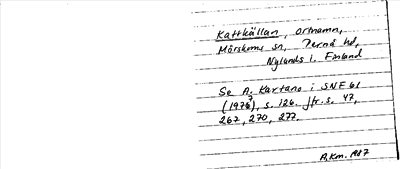 Kattkällan, ortnamn,
Mörskoms sn, Pernå hd,
Nylands l. Finland
Se A. Kartano i SNF 61
(1976), s. 126. Jfr. s. 47,
267, 270, 277.
R.Km. 1987